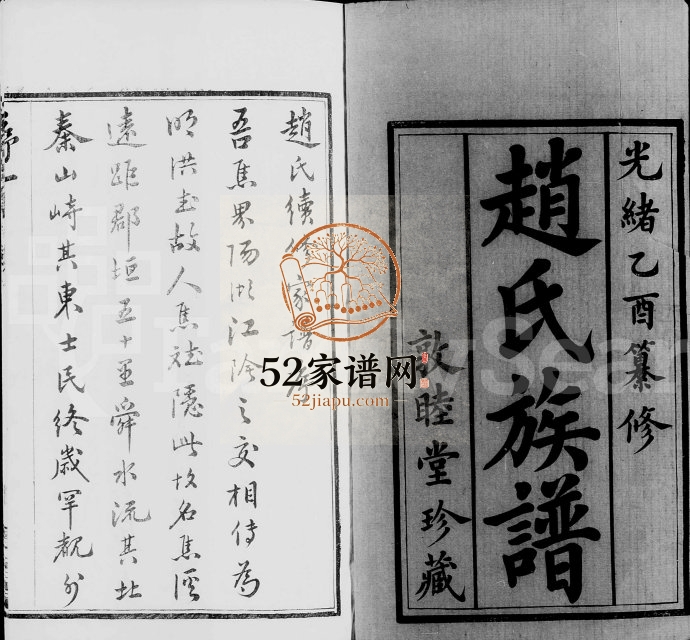 光緒乙酉纂修
趙氏族譜
敦睦堂珍藏
趙氏續修家譜序
吾焦界陽湖江陰之交相傳為
明洪武故人焦 隱此故名焦溪
遠距郡垣五十里舜水流其北
秦山峙其東士民終歲罕覩外
52家谱网
52jiapu.com